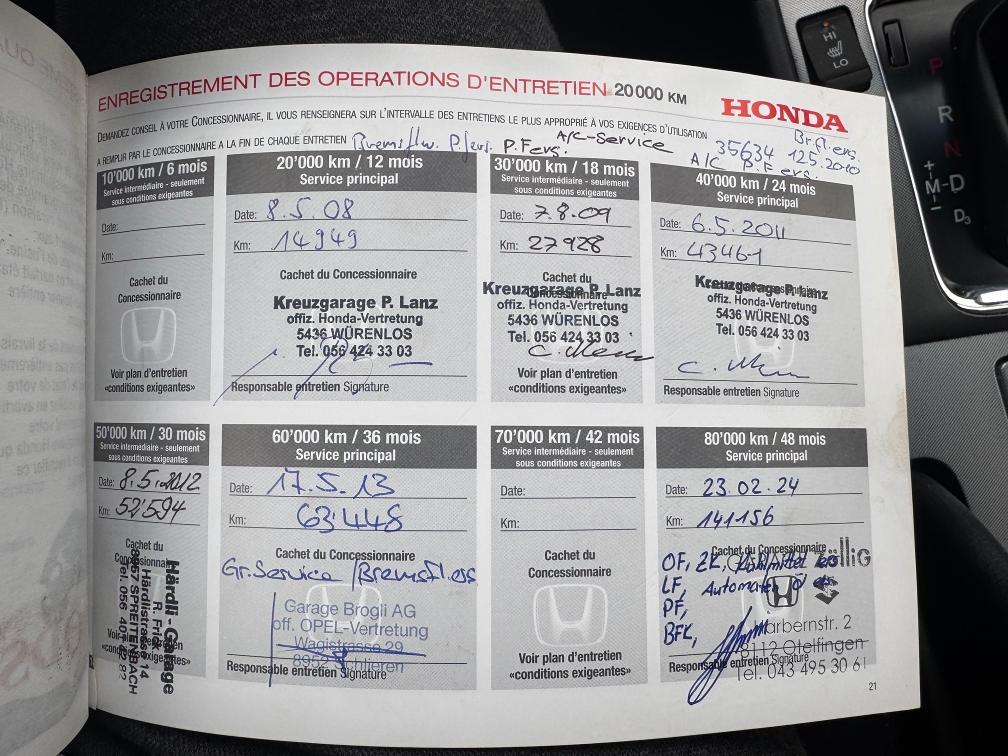 ENREGISTREMENT DES OPERATIONS D'ENTRETIEN 20 000 KM
HONDA
DEMANDEZ CONSEIL À VOTRE CONCESSIONNAIRE, IL VOUS RENSEIGNERA SUR L'INTERVALLE DES ENTRETIENS LE PLUS APPROPRIÉ À VOS EXIGENCES D'UTILISATION
A REMPLIR PAR LE CONCESSIONNAIRE A LA FIN DE CHAQUE ENTRETIEN
Bremsflw. P.fers. P.Fers. A/C-Service
35634 12.5.2010
A/C P.Fers.
10'000 km / 6 mois
Service intermédiaire - seulement
sous conditions exigeantes
Date:
Km:
Cachet du
Concessionnaire
Voir plan d'entretien
«conditions exigeantes»
20'000 km / 12 mois
Service principal
Date: 8.5.08
Km: 14949
Cachet du Concessionnaire
Kreuzgarage P. Lanz
offiz. Honda-Vertretung
5436 WÜRENLOS
Tel. 056 424 33 03
Responsable entretien Signature
30'000 km / 18 mois
Service intermédiaire - seulement
sous conditions exigeantes
Date: 7.8.09
Km: 27928
Cachet du
Concessionnaire
Kreuzgarage P. Lanz
offiz. Honda-Vertretung
5436 WÜRENLOS
Tel. 056 424 33 03
Voir plan d'entretien
«conditions exigeantes»
40'000 km / 24 mois
Service principal
Date: 6.5.2011
Km: 43461
Kreuzgarage P. Lanz
offiz. Honda-Vertretung
5436 WÜRENLOS
Tel. 056 424 33 03
Responsable entretien Signature
50'000 km / 30 mois
Service intermédiaire - seulement
sous conditions exigeantes
Date: 8.5.2012
Km: 52'594
Cachet du
Concessionnaire
Härdli-Garage
R. Frick
Härdlistrasse 14
8957 SPREITENBACH
Tel. 056 401
Voir plan d'entretien
«conditions exigeantes»
60'000 km / 36 mois
Service principal
Date: 17.5.13
Km: 63'448
Cachet du Concessionnaire
Gr. Service / Bremsfl. ers
Garage Brogli AG
off. OPEL-Vertretung
Wagistrasse 29
8952 Schlieren
Responsable entretien Signature
70'000 km / 42 mois
Service intermédiaire - seulement
sous conditions exigeantes
Date:
Km:
Cachet du
Concessionnaire
Voir plan d'entretien
«conditions exigeantes»
80'000 km / 48 mois
Service principal
Date: 23.02.24
Km: 141156
Cachet du Concessionnaire
OF, ZK, Kühlmittel
LF, Automaten
PF,
BFK,
GARAGE zöllig
2
8112 Otelfingen
Tel. 043 495 30 61
Responsable entretien Signature
21
HI
LO
P
R
N
D
M
D3
+
−